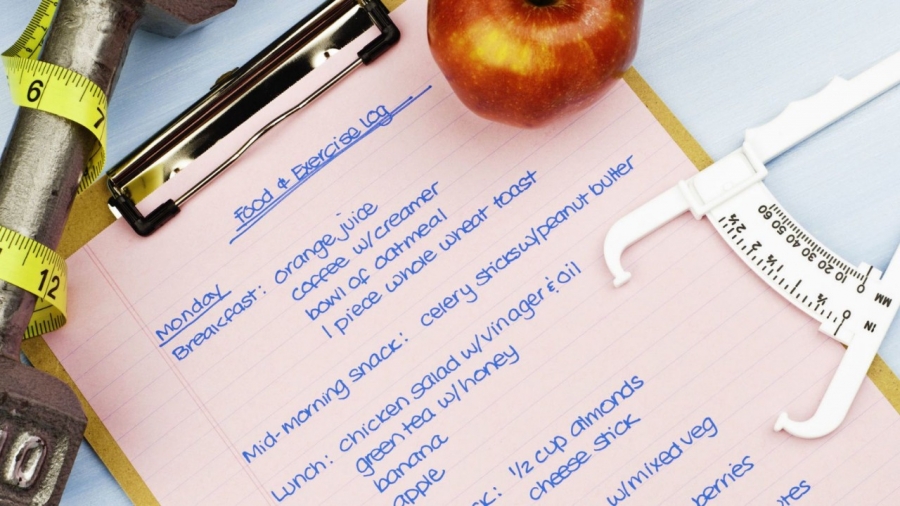 Food & Exercise Log
Monday
Breakfast: orange juice
coffee w/creamer
bowl of oatmeal
1 piece whole wheat toast
Mid-morning snack: celery sticks w/peanut butter
Lunch: chicken salad w/vinager & oil
green tea w/honey
banana
apple
1/2 cup almonds
cheese stick
w/mixed veg
berries
6
7
12
10
60 50 40 30 20 10 0 MM
2½ 2 1½ 1 ½ 0 IN